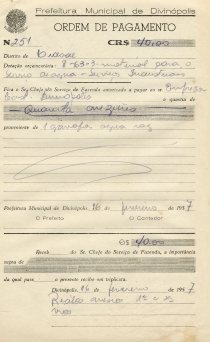 Prefeitura Municipal de Divinópolis
ORDEM DE PAGAMENTO
N 251 CR$ 40,00
Distrito de
Dotação orçamentária: 8-63-3-material para o
Fica o Snr. Chefe do Serviço de Fazenda autorizado a pagar ao sr.
a quantia de
Quarenta cruzeiros
proveniente de 1 garrafa agua raz
Prefeitura Municipal de Divinópolis, 16 de fevereiro de 1957
O Prefeito O Contador
CR$ 40,00
Receb do Sr. Chefe do Serviço de Fazenda, a importância
supra de
da qual para o presente recibo em triplicata.
Divinópolis, 16 de fevereiro de 1957